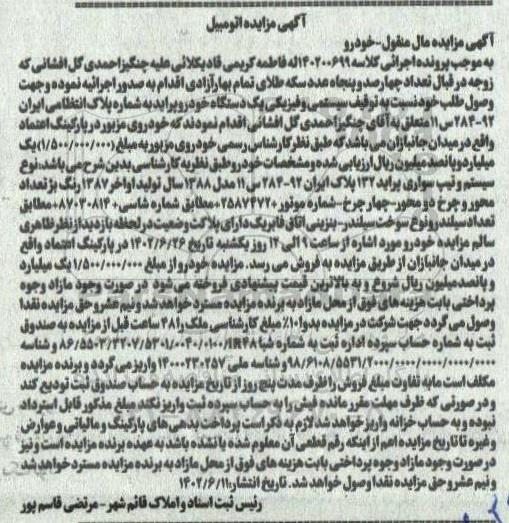 آگهی مزایده اتومبیل
آگهی مزایده مال منقول-خودرو
به موجب پرونده اجرائی کلاسه ۱۴۰۲۰۰۶۹۹له فاطمه کریمی قادیکلائی علیه چنگیزاحمدی گل افشانی که
زوجه در قبال تعداد چهارصدوپنجاه عدد سکه طلای تمام بهارآزادی اقدام به صدور اجرائیه نموده و جهت
وصول طلب خودنسبت به توقیف سیستمی وفیزیکی یک دستگاه خودروپراید به شماره پلاک انتظامی ایران
۹۲-۲۸۴س۱۱متعلق به آقای چنگیزاحمدی گل افشانی اقدام نمودندکه خودروی مزبور در پارکینگ اعتماد
واقع درمیدان جانبازان می باشدکه طبق نظرکارشناس رسمی خودروی مزبوربه مبلغ (۱/۵۰۰/۰۰۰/۰۰۰)یک
میلیاردوپانصدمیلیون ریال ارزیابی شده و مشخصات خودروطبق نظریه کارشناسی بدین شرح می باشد،نوع
سیستم و تیپ سواری پراید ۱۳۲ پلاک ایران ۹۲-۲۸۴س۱۱ مدل ۱۳۸۸ سال تولیداواخر۱۳۸۷ رنگ بژتعداد
محور و چرخ دو محور-چهارچرخ-شماره موتور ۲۵۸۷۴۷۲+مطابق شماره شاسی ۸۷۰۴۰۸۱۴+مطابق
تعدادسیلندرونوع سوخت سیلندر-بنزینی اتاق فابریک دارای پلاکت وضعیت درلحظه بازدیدازنظرظاهری
سالم مزایده خودرو مورد اشاره از ساعت ۹ الی ۱۲ روز یکشنبه تاریخ ۱۴۰۲/۶/۲۶ در پارکینگ اعتماد واقع
درمیدان جانبازان از طریق مزایده به فروش می رسد. مزایده خودرو از مبلغ ۱/۵۰۰/۰۰۰/۰۰۰ یک میلیارد
و پانصدمیلیون ریال شروع و به بالاترین قیمت پیشنهادی فروخته می شود در صورت وجود مازاد وجوه
پرداختی بابت هزینه های فوق از محل مازاد به برنده مزایده مسترد خواهدشد ونیم عشروحق مزایده نقدا
وصول می گردد جهت شرکت در مزایده بدوا۱۰٪ مبلغ کارشناسی ملک را ۴۸ ساعت قبل از مزایده به صندوق
ثبت به شماره حساب سپرده اداره ثبت به شماره شبا
وشناسه ملی ۱۴۰۰۰۲۳۰۲۵۷ واریزمی گردد و برنده مزایده
مکلف است مابه تفاوت مبلغ فروش را ظرف مدت پنج روز از تاریخ مزایده به حساب صندوق ثبت تودیع کند
و در صورتی که ظرف مهلت مقرر مانده فیش را به حساب سپرده ثبت واریز نکند مبلغ مذکور قابل استرداد
نبوده و به حساب خزانه واریز خواهد شد لازم به ذکر است پرداخت بدهی های پارکینگ و مالیاتی و عوارض
وغیره تا تاریخ مزایده اعم از اینکه رقم قطعی آن معلوم شده یا نشده باشد به عهده برنده مزایده است و نیز
در صورت وجود مازاد وجوه پرداختی بابت هزینه های فوق از محل مازاد به برنده مزایده مسترد خواهد شد
و نیم عشر و حق مزایده نقدا وصول خواهد شد. تاریخ انتشار:۱۴۰۲/۶/۱۱
رئیس ثبت اسناد و املاک قائم شهر-مرتضی قاسم پور